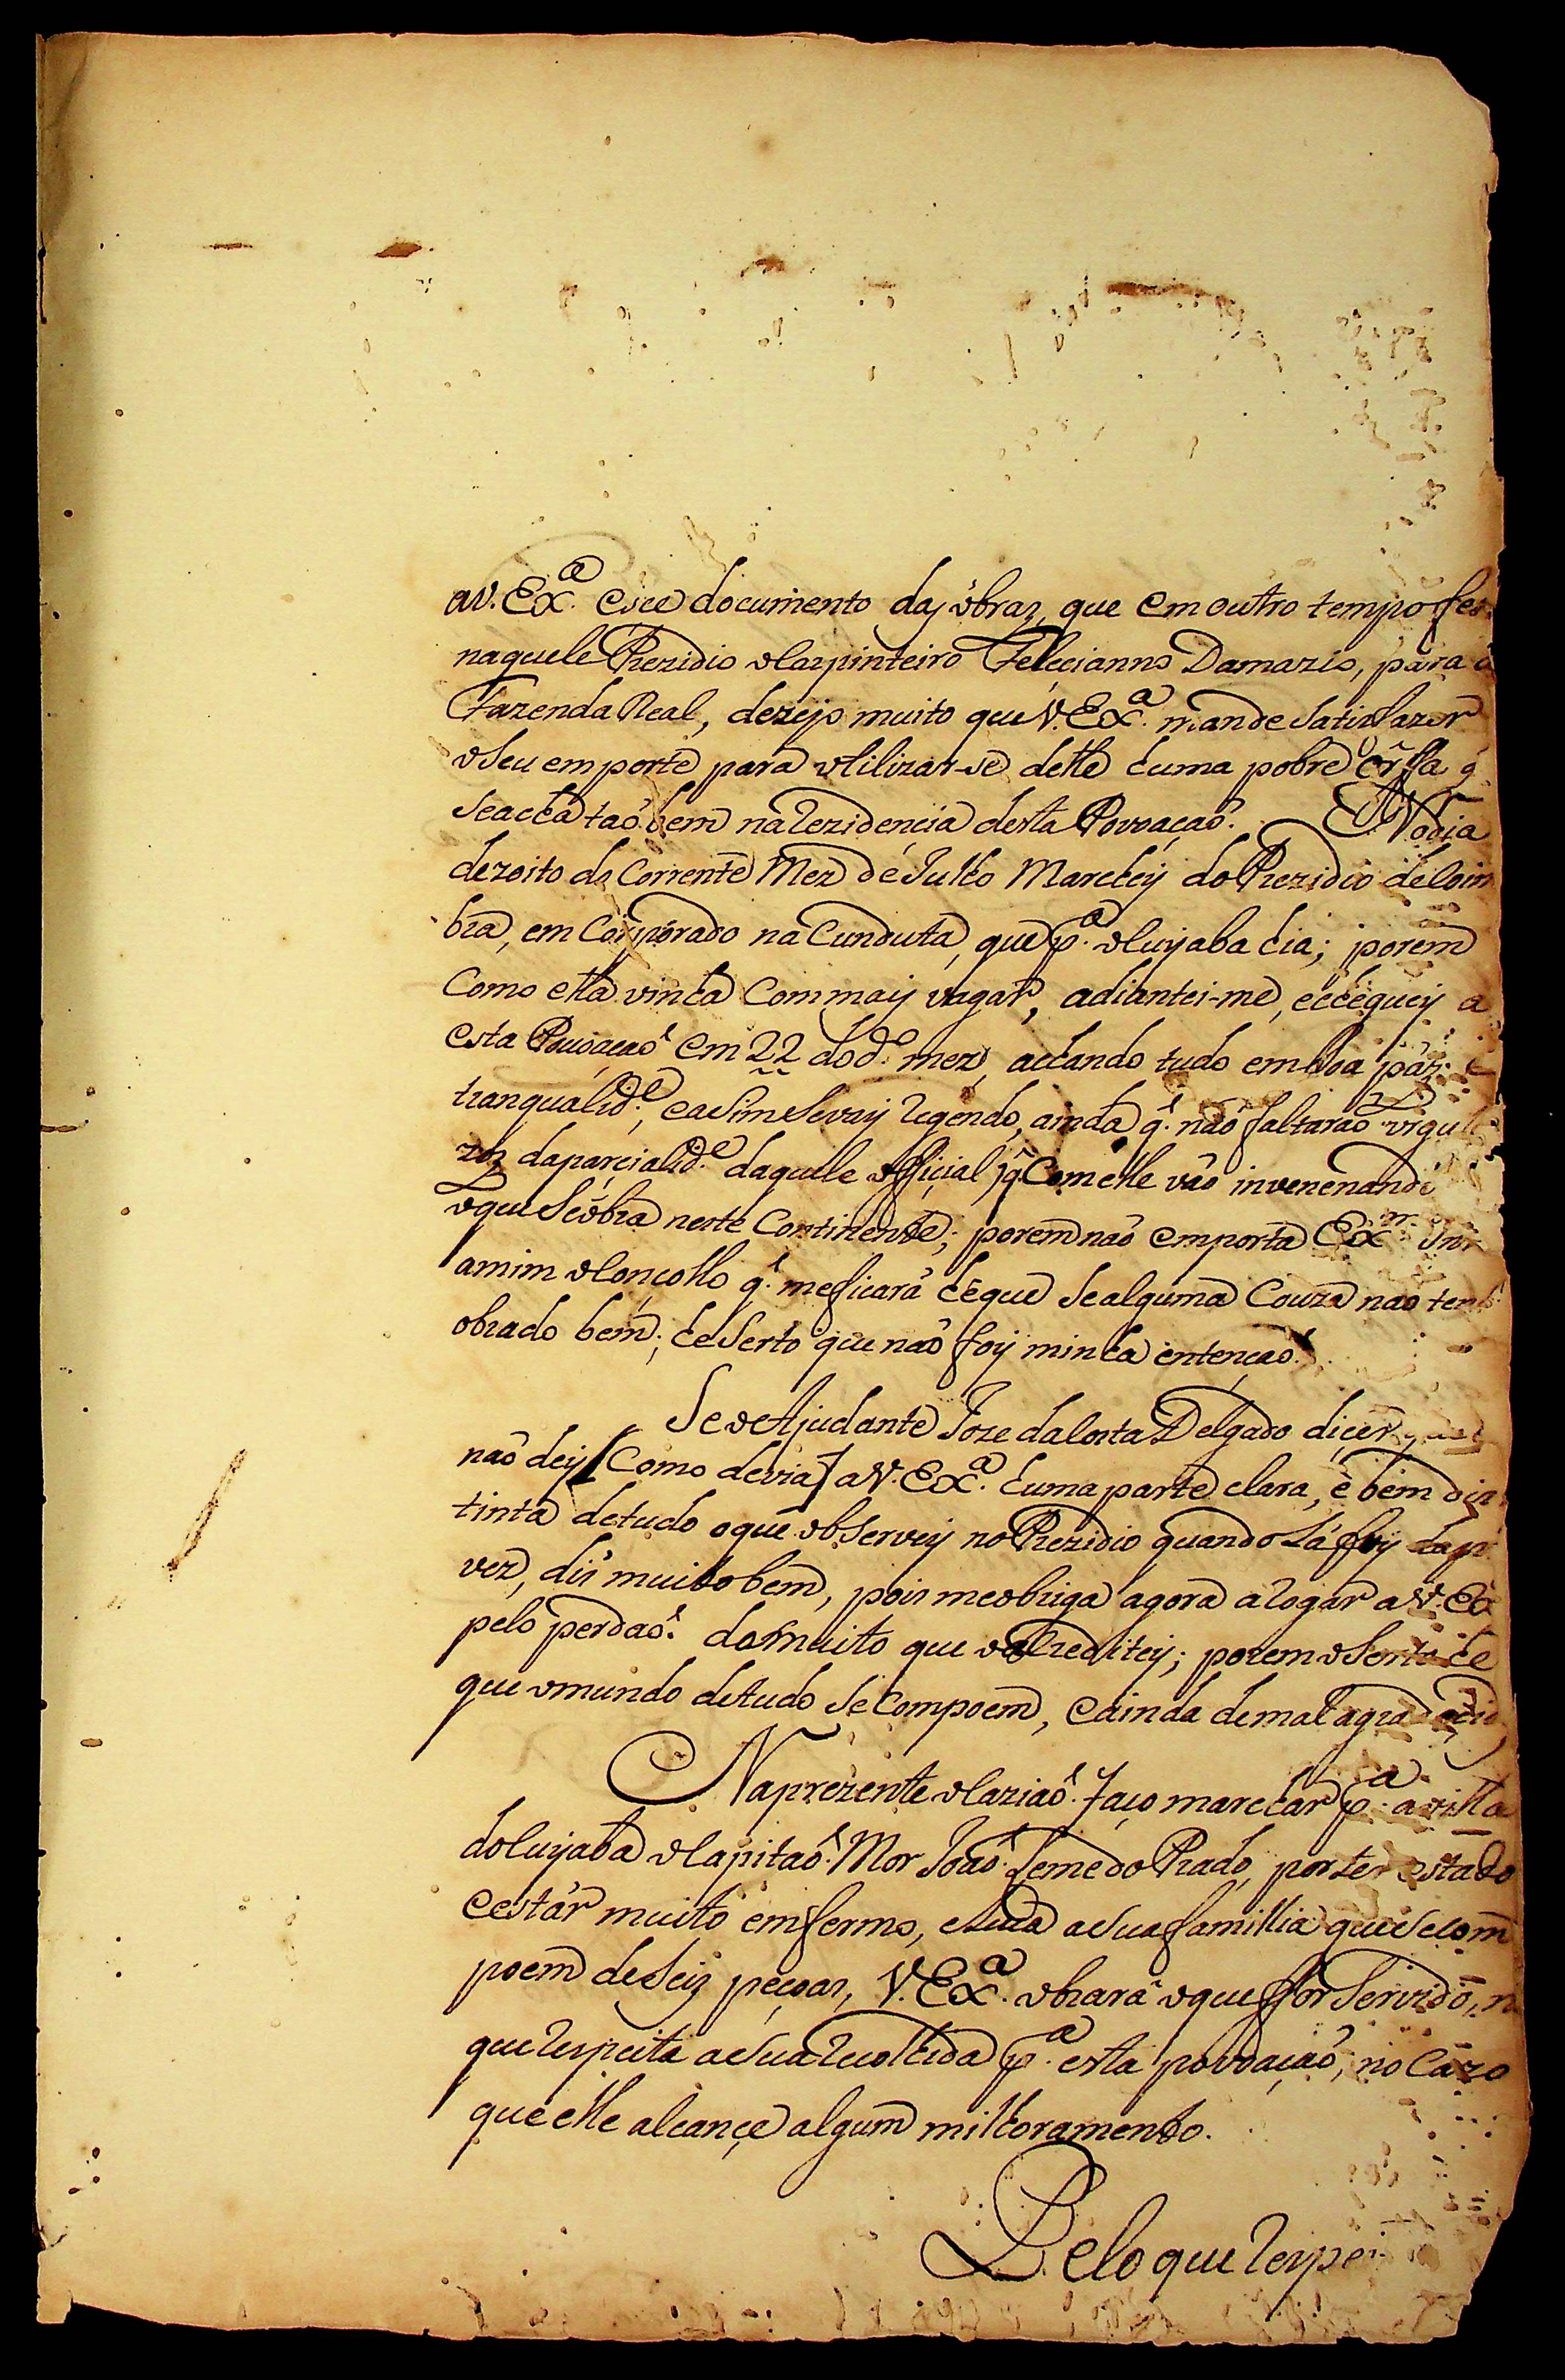 a V. Exª. esse documento das óbraz, que em outro tempo fes
naquele Prezidio o Carpinteiro Felecianno Damazio, para a
Fazenda Real, dezejo muito que V. Exª. mande Satisfazer
o Seu emporte para utilizar-se delle huma pobre Orfa q̃
Seacha taõ bem na rezidencia desta Povoaçaõ. No dia
dezoito do Corrente Mez de Julho Marchey do Prezidio de Coim
bra, em Corporado na Cunduta, que pª. o Cuyaba hia; porem
Como ella vinha Com mais vagar, adiantei-me, e cheguey a
esta Povoaçaõ em 22 do dº. mez, achando tudo em boa páz, e
tranqualidᵉ., e asim Se vay regendo, ainda q̃. naõ faltaraõ
daparcialidᵉ. daquele official q̃ Com elle vaõ invenenando
o que Se óbra neste Continente; porem naõ emporta Exmº. Snr
amim o Conçollo q̃. me ficará hé que Se alguma Couza naõ tenho
obrado bem; he Serto que naõ foy minha entençaõ.
Se o Ajudante Joze da Costa Delgado dicer, que
naõ dey [Como devia] a V. Exª. huma parte clara, e bem dis
tinta de tudo o que observey no Prezidio quando Lá fuy da pr
vez, dis muito bem, pois me obriga agora a rogar a V. Ex
pelo perdaõ. do muito que o acreditey; porem o Serto he
que o mundo de tudo Se Compoem, e ainda de mal agradecid
Na prezente o Caziaõ. Faço marchar pª. a villa
do Cuyaba o Capitaõ. Mor Joaõ. Leme do Prado, por ter estado
e estár muito emfermo, e toda a Sua famillia que Se Com
poem de Seiz peçoas, V. Exª. obrará o que for Servido, n
que respeita a Sua recolhida pª. esta povoaçaõ, no Cazo
que elle alcançe algum milhoramento.
Pelo que respei